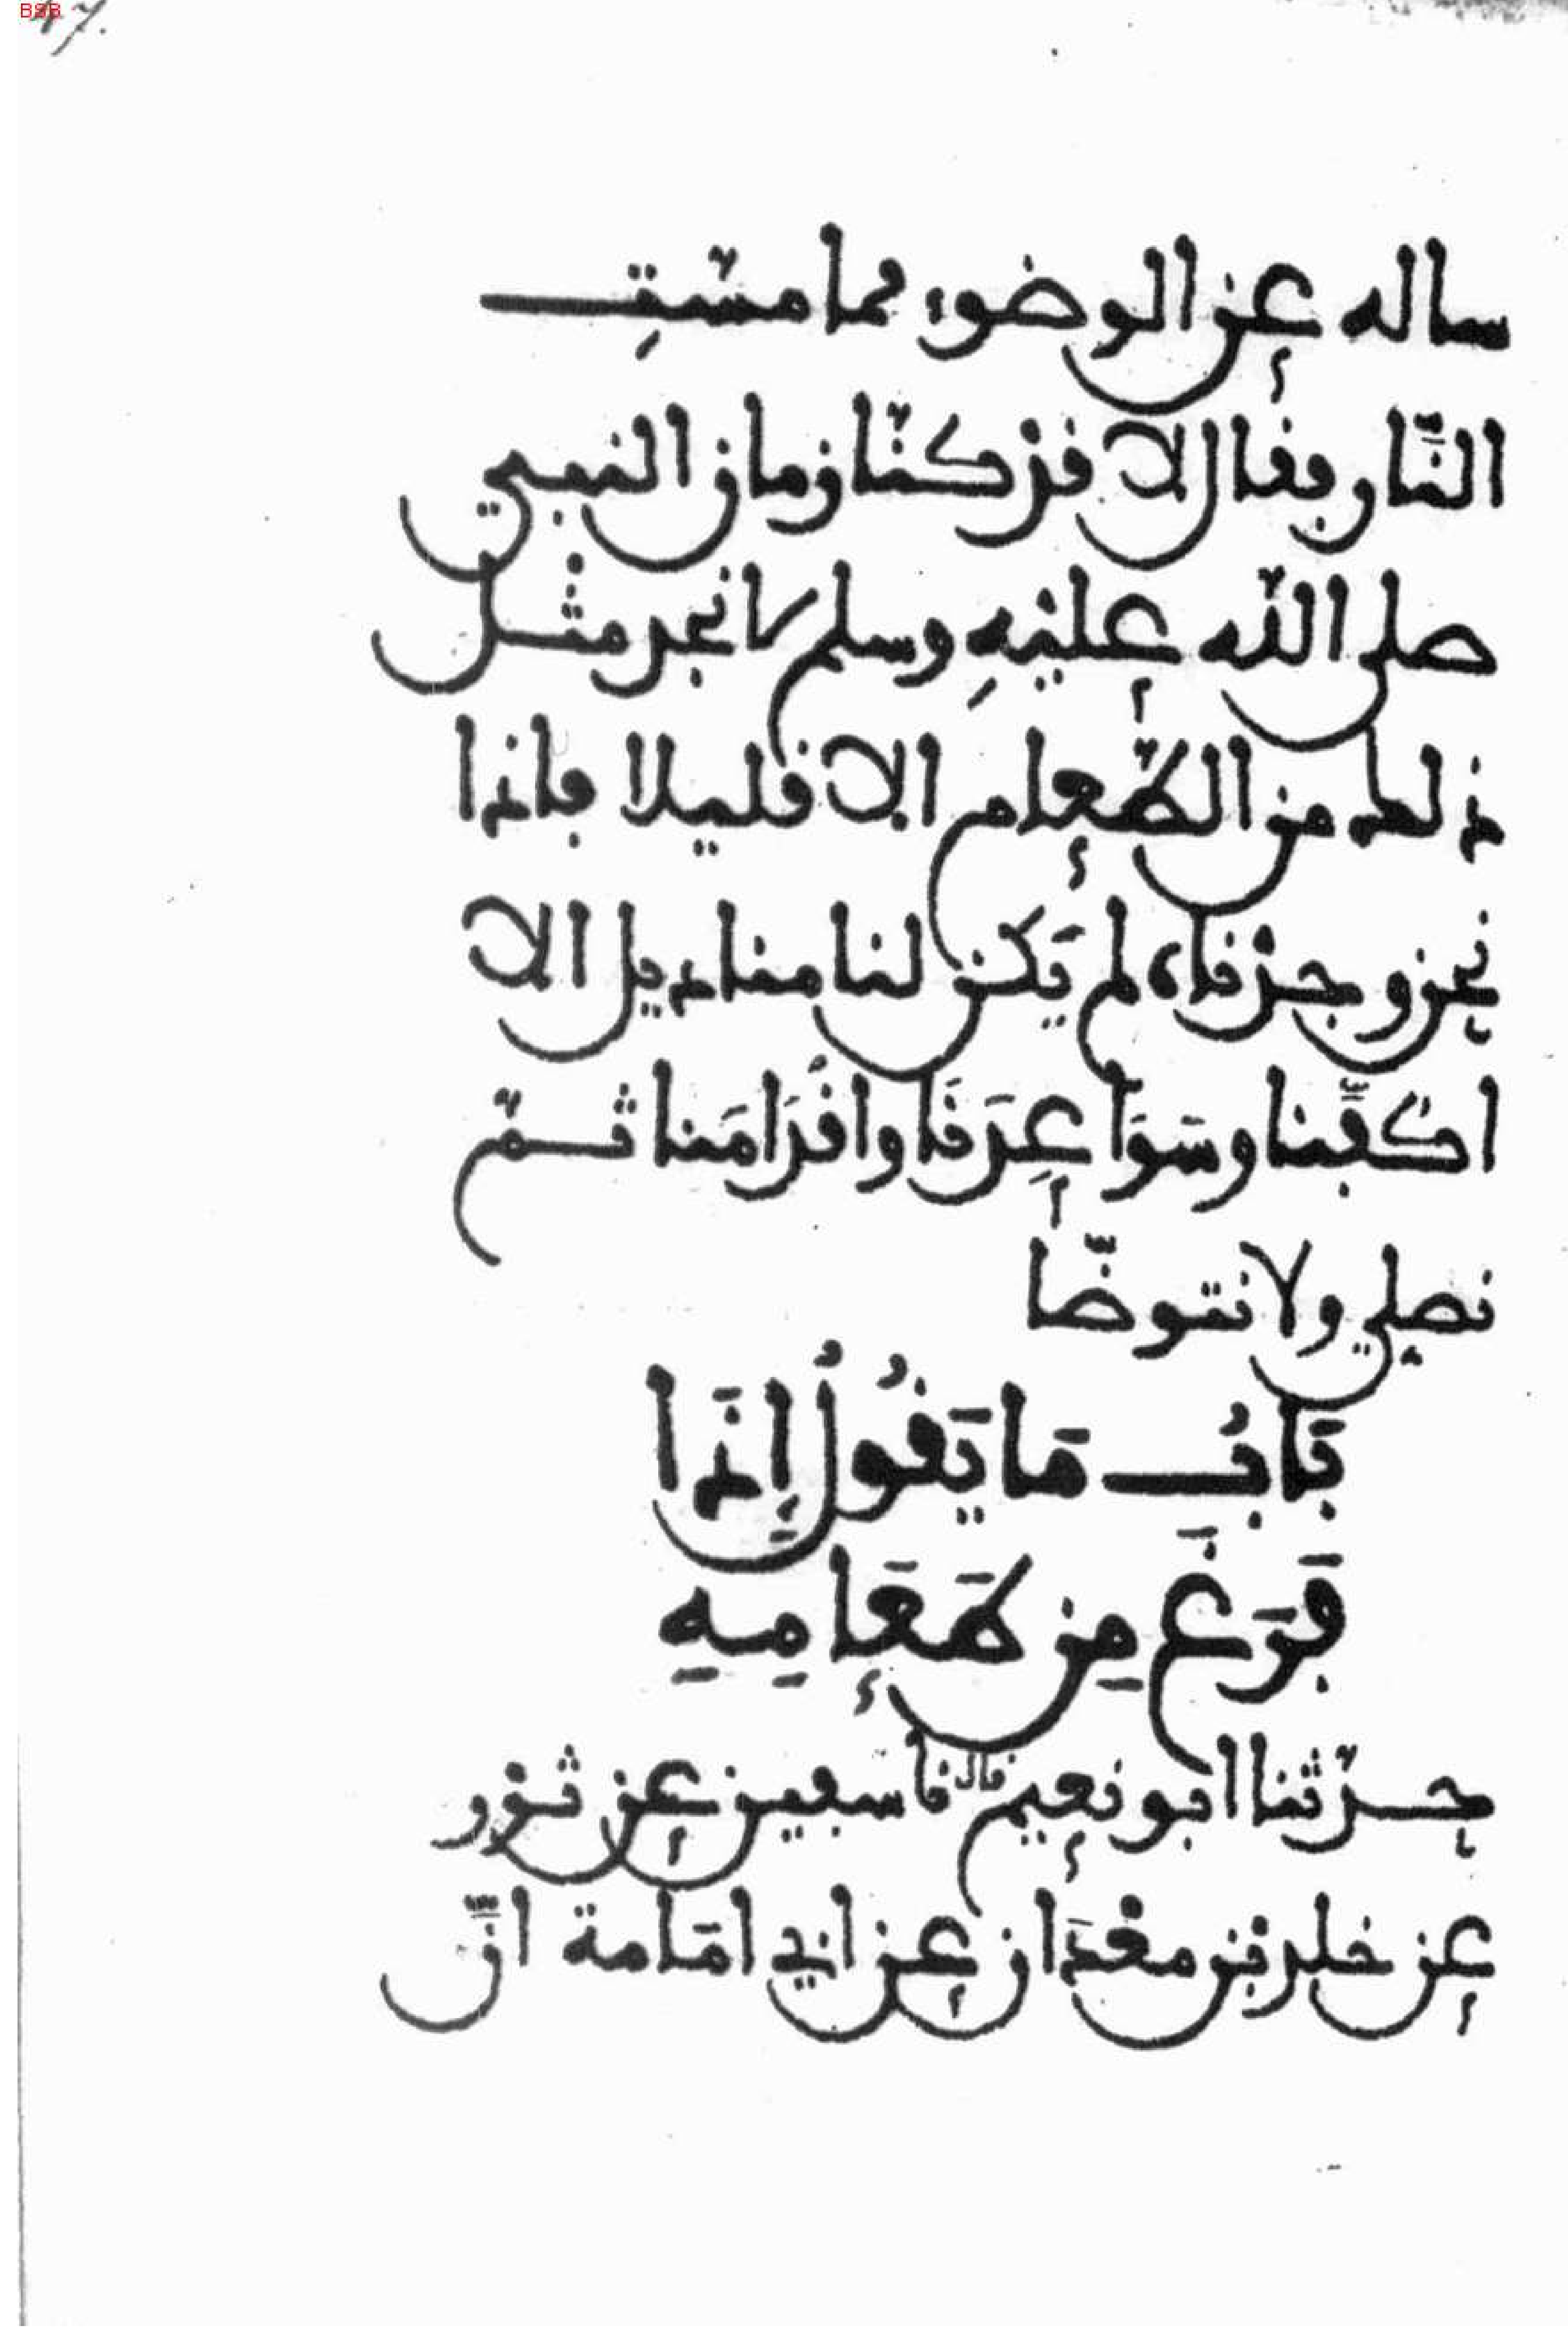 BSB
47.
ساله عن الوضوء مما مسّتِ
النّار فقال لا قد كنّا زمان النبي
صلى اللّه عليْهِ وسلم لا نجد مثْل
ذلك من الطّعام الا قليلا فاذا
نحن وجدْناه لم يَكن لنا مناديل الا
اكفّنا وسَوَاعِدَنَا واقْدَامَنا ثمّ
نصلي ولا نتوضّا
بَابُ مَا يَقُولُ إِذَا
فَرَغَ مِن طَعَامِهِ
حدّثنا ابو نعيم قال نا سفين عن ثوْر
عن خلد بْن معْدَان عن ابي امَامة انّ